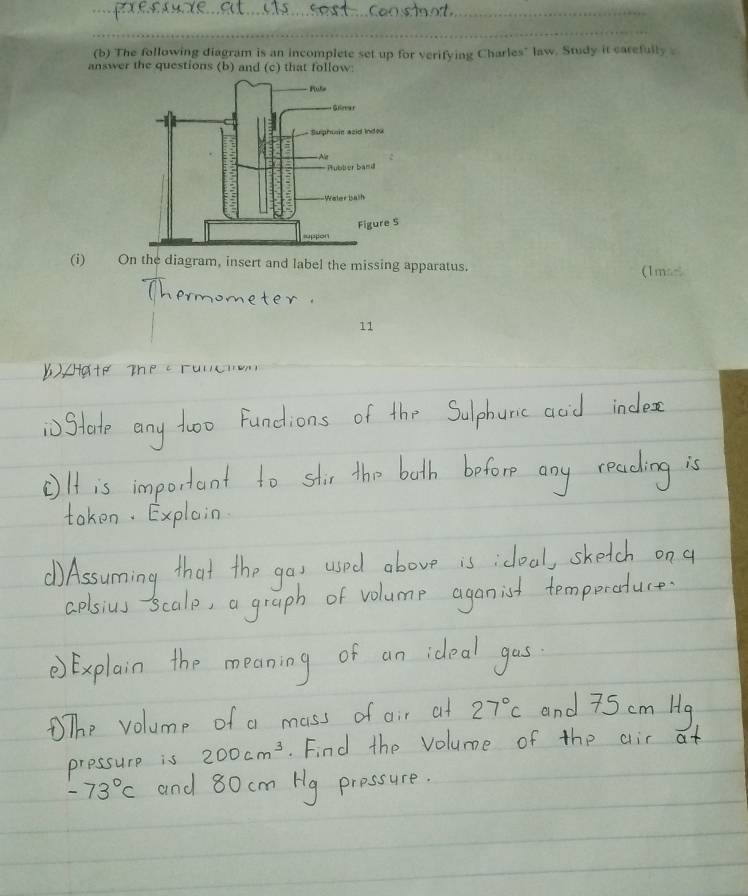 pressure at its cost constant.
(b) The following diagram is an incomplete set up for verifying Charles' law. Study it carefully
answer the questions (b) and (c) that follow:
Rule
Stirrer
Sulphuric acid index
Air
Rubber band
Water bath
Figure 5
support
(i) On the diagram, insert and label the missing apparatus.
(1m
Thermometer.
11
State the
ii) State any two Functions of the Sulphuric acid index
c) It is important to stir the bath before any reading is
taken. Explain.
d) Assuming that the gas used above is ideal, sketch on a
celsius scale, a graph of volume aganist temperature.
e) Explain the meaning of an ideal gas.
f) The volume of a mass of air at 27°C and 75 cm Hg
pressure is 200 cm³. Find the volume of the air at
-73°C and 80 cm Hg pressure.